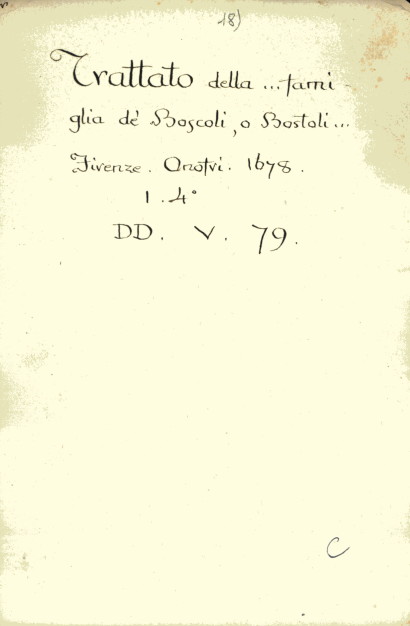 18)
Trattato della ... fami-
glia dè Boscoli, o Bostoli ...
Firenze. Onofri. 1678.
1. 4°
DD. V. 79.
C